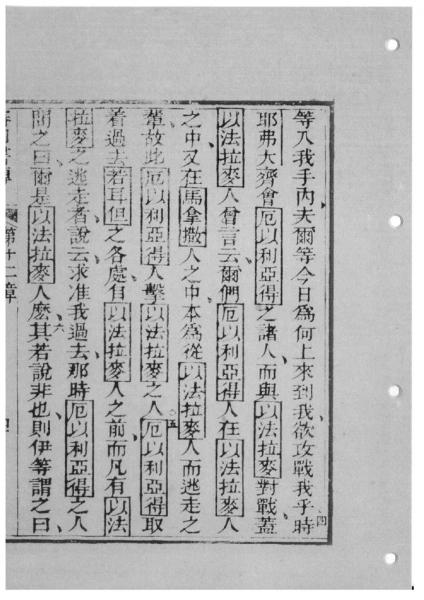 等入我手內夫爾等今日爲何上來到我欲攻戰我乎時四
耶弗大齊會厄以利亞得之諸人而與以法拉麥對戰蓋
以法拉麥人曾言云爾們厄以利亞得人在以法拉麥人
之中又在馬拿撒人之中本爲從以法拉麥人而逃走之
輩故此厄以利亞得人擊以法拉麥之人五厄以利亞得取
着過去若耳但之各處有以法拉麥人之前而凡有以法
拉麥之逃走者說云求准我過去那時厄以利亞得之人
問之曰爾是以法拉麥人麽其若說非也六則伊等謂之曰
第十二章 四